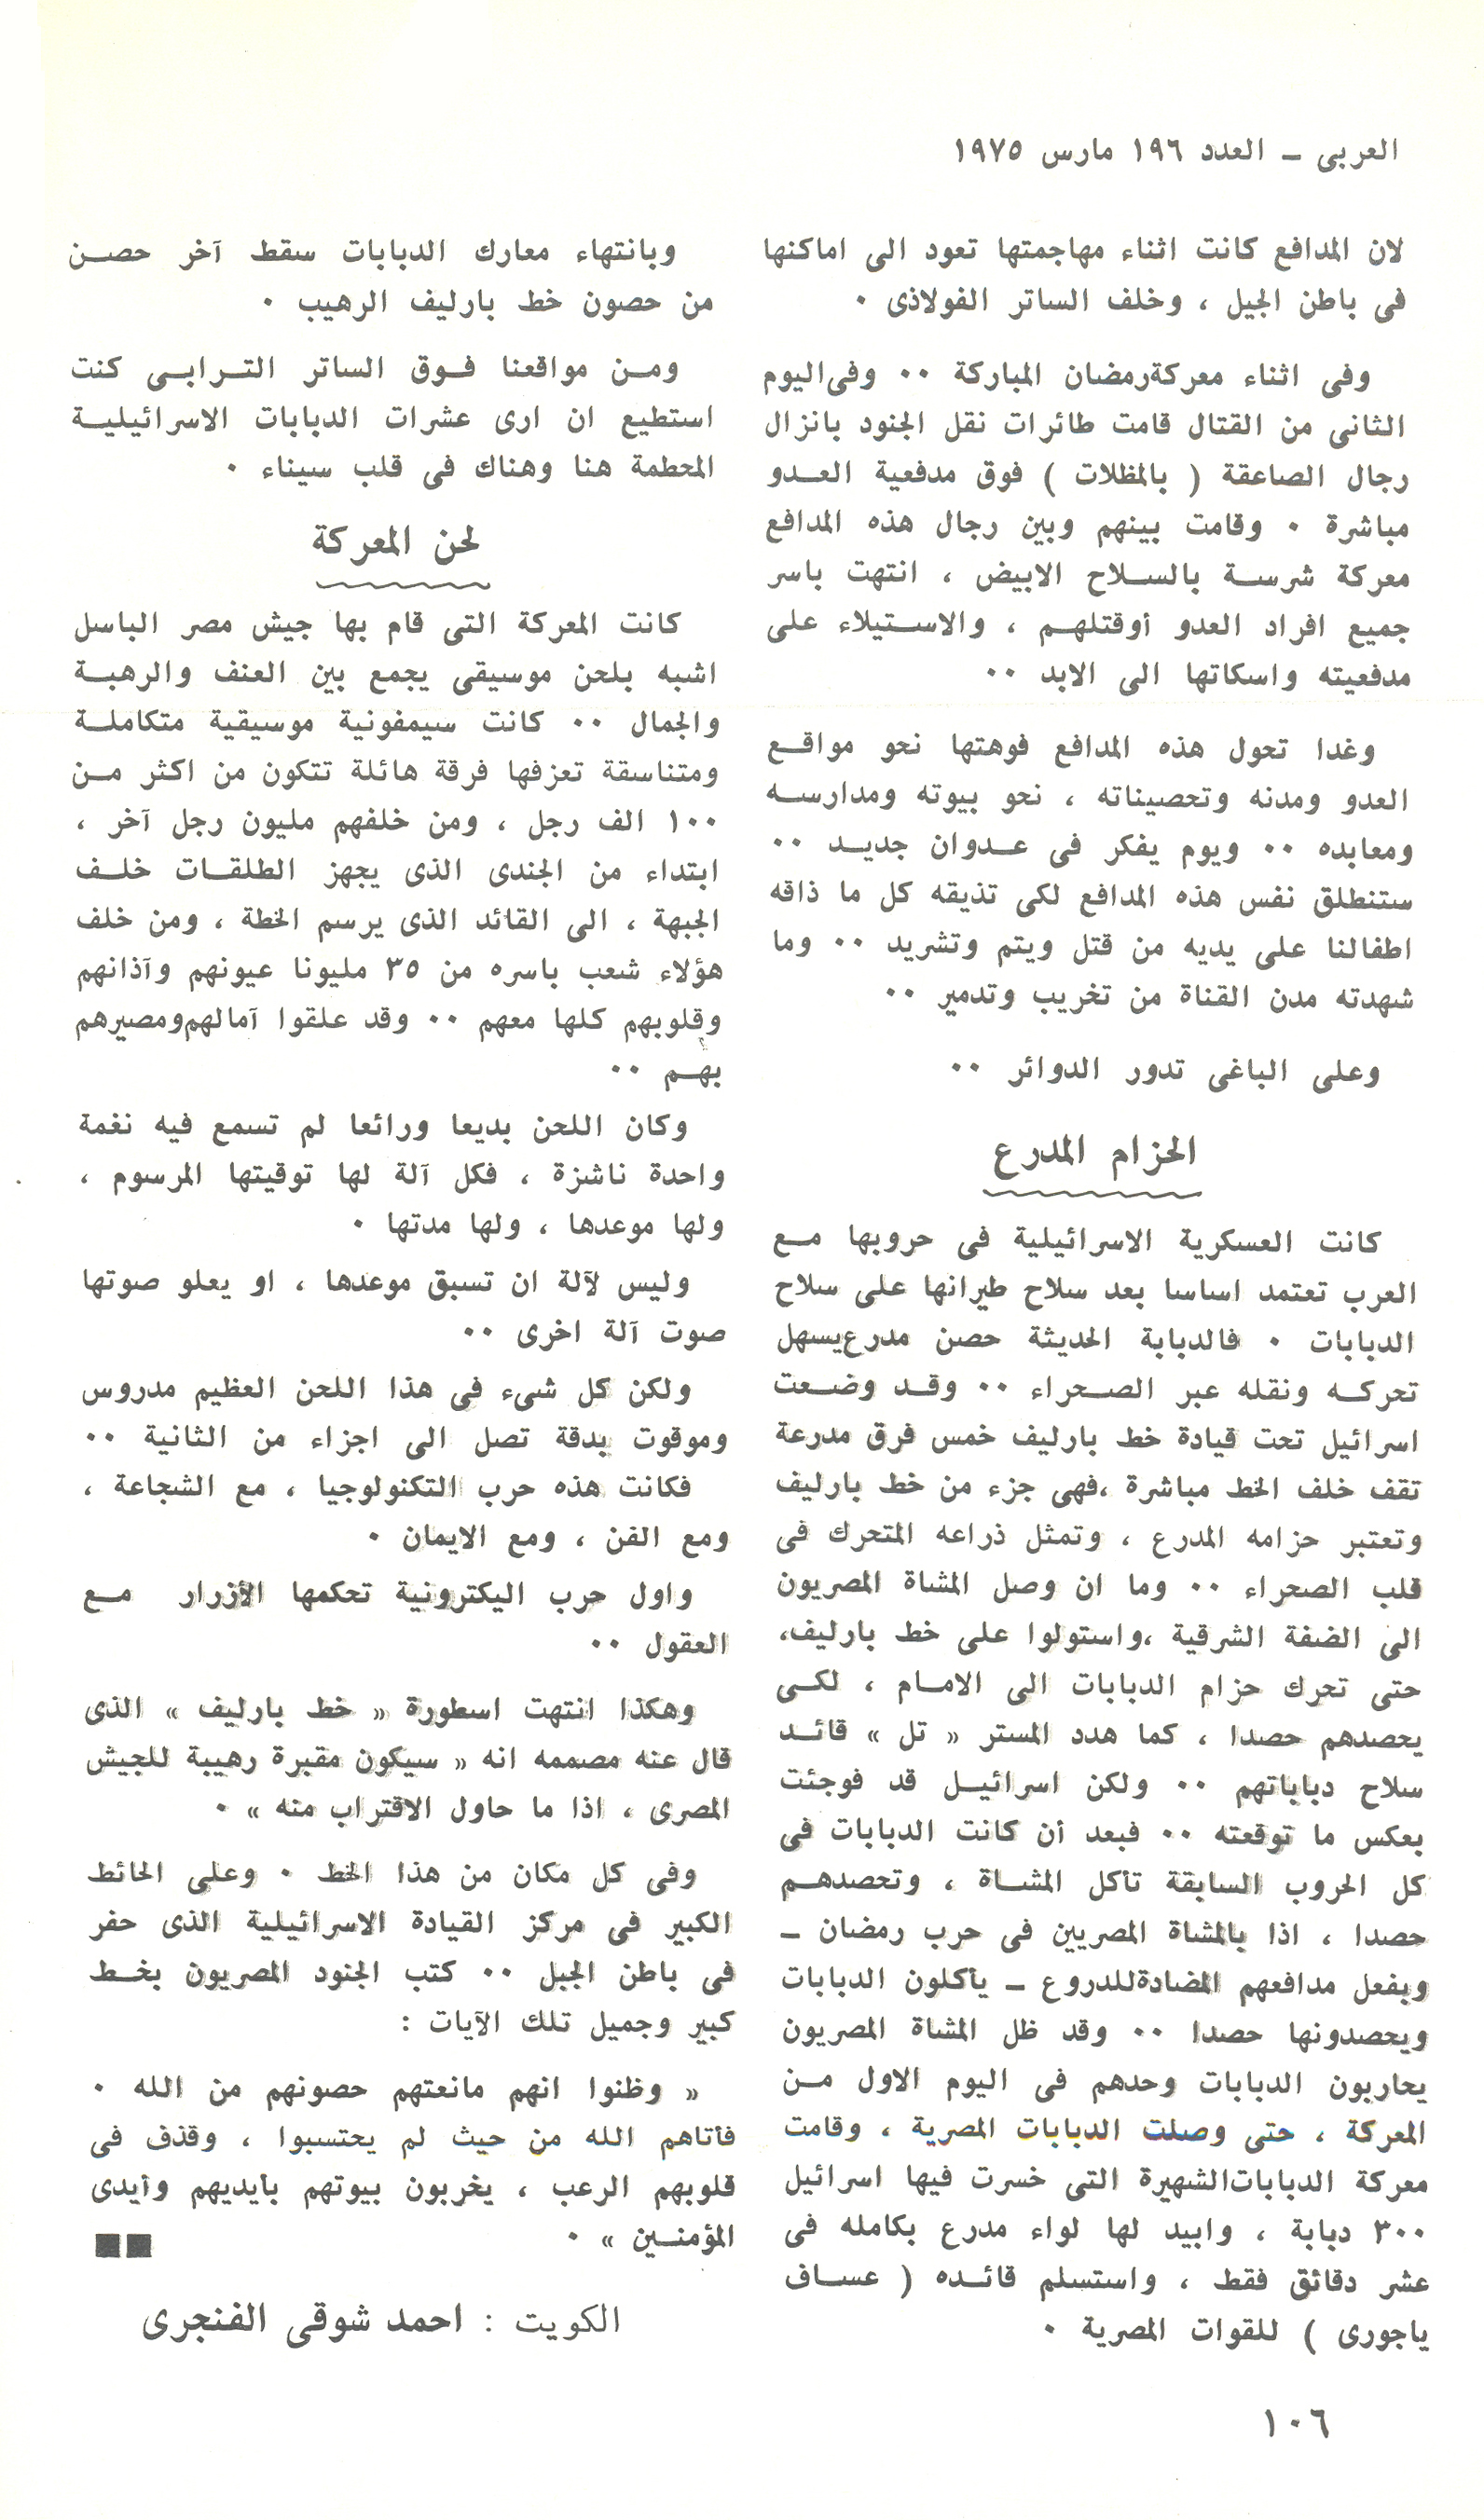 العربى – العدد ١٩٦ مارس ١٩٧٥
لان المدافع كانت اثناء مهاجمتها تعود الى اماكنها
فى باطن الجيل ، وخلف الساتر الفولاذى ٠
وفى اثناء معركةرمضان المباركة ٠٠ وفىاليوم
الثانى من القتال قامت طائرات نقل الجنود بانزال
رجال الصاعقة ( بالمظلات ) فوق مدفعية العدو
مباشرة ٠ وقامت بينهم وبين رجال هذه المدافع
معركة شرسة بالسلاح الابيض ، انتهت باسر
جميع افراد العدو أوقتلهم ، والاستيلاء على
مدفعيته واسكاتها الى الابد ٠٠
وغدا تحول هذه المدافع فوهتها نحو مواقع
العدو ومدنه وتحصيناته ، نحو بيوته ومدارسه
ومعابده ٠٠ ويوم يفكر فى عدوان جديد ٠٠
ستنطلق نفس هذه المدافع لكى تذيقه كل ما ذاقه
اطفالنا على يديه من قتل ويتم وتشريد ٠٠ وما
شهدته مدن القناة من تخريب وتدمير ٠٠
وعلى الباغى تدور الدوائر ٠٠
الحزام المدرع
كانت العسكرية الاسرائيلية فى حروبها مع
العرب تعتمد اساسا بعد سلاح طيرانها على سلاح
الدبابات ٠ فالدبابة الحديثة حصن مدرعيسهل
تحركه ونقله عبر الصحراء ٠٠ وقد وضعت
اسرائيل تحت قيادة خط بارليف خمس فرق مدرعة
تقف خلف الخط مباشرة ،فهى جزء من خط بارليف
وتعتبر حزامه المدرع ، وتمثل ذراعه المتحرك فى
قلب الصحراء ٠٠ وما ان وصل المشاة المصريون
الى الضفة الشرقية ،واستولوا على خط بارليف،
حتى تحرك حزام الدبابات الى الامام ، لكى
يحصدهم حصدا ، كما هدد المستر « تل » قائد
سلاح دباباتهم ٠٠ ولكن اسرائيل قد فوجئت
بعكس ما توقعته ٠٠ فبعد أن كانت الدبابات فى
كل الحروب السابقة تأكل المشاة ، وتحصدهم
حصدا ، اذا بالمشاة المصريين فى حرب رمضان –
وبفعل مدافعهم المضادةللدروع – يأكلون الدبابات
ويحصدونها حصدا ٠٠ وقد ظل المشاة المصريون
يحاربون الدبابات وحدهم فى اليوم الاول من
المعركة ، حتى وصلت الدبابات المصرية ، وقامت
معركة الدباباتالشهيرة التى خسرت فيها اسرائيل
٣٠٠ دبابة ، وابيد لها لواء مدرع بكامله فى
عشر دقائق فقط ، واستسلم قائده ( عساف
ياجورى ) للقوات المصرية ٠
وبانتهاء معارك الدبابات سقط آخر حصن
من حصون خط بارليف الرهيب ٠
ومن مواقعنا فوق الساتر الترابى كنت
استطيع ان ارى عشرات الدبابات الاسرائيلية
المحطمة هنا وهناك فى قلب سيناء ٠
لحن المعركة
كانت المعركة التى قام بها جيش مصر الباسل
اشبه بلحن موسيقى يجمع بين العنف والرهبة
والجمال ٠٠ كانت سيمفونية موسيقية متكاملة
ومتناسقة تعزفها فرقة هائلة تتكون من اكثر من
١٠٠ الف رجل ، ومن خلفهم مليون رجل آخر ،
ابتداء من الجندى الذى يجهز الطلقات خلف
الجبهة ، الى القائد الذى يرسم الخطة ، ومن خلف
هؤلاء شعب باسره من ٣٥ مليونا عيونهم وآذانهم
وقلوبهم كلها معهم ٠٠ وقد علقوا آمالهمومصيرهم
بهم ٠٠
وكان اللحن بديعا ورائعا لم تسمع فيه نغمة
واحدة ناشزة ، فكل آلة لها توقيتها المرسوم ،
ولها موعدها ، ولها مدتها ٠
وليس لآلة ان تسبق موعدها ، او يعلو صوتها
صوت آلة اخرى ٠٠
ولكن كل شىء فى هذا اللحن العظيم مدروس
وموقوت بدقة تصل الى اجزاء من الثانية ٠٠
فكانت هذه حرب التكنولوجيا ، مع الشجاعة ،
ومع الفن ، ومع الايمان ٠
واول حرب اليكترونية تحكمها الأزرار مع
العقول ٠٠
وهكذا انتهت اسطورة « خط بارليف » الذى
قال عنه مصممه انه « سيكون مقبرة رهيبة للجيش
المصرى ، اذا ما حاول الاقتراب منه » ٠
وفى كل مكان من هذا الخط ٠ وعلى الحائط
الكبير فى مركز القيادة الاسرائيلية الذى حفر
فى باطن الجبل ٠٠ كتب الجنود المصريون بخط
كبير وجميل تلك الآيات :
« وظنوا انهم مانعتهم حصونهم من الله ٠
فأتاهم الله من حيث لم يحتسبوا ، وقذف فى
قلوبهم الرعب ، يخربون بيوتهم بأيديهم وأيدى
المؤمنين » ٠
الكويت : احمد شوقى الفنجرى
١٠٦